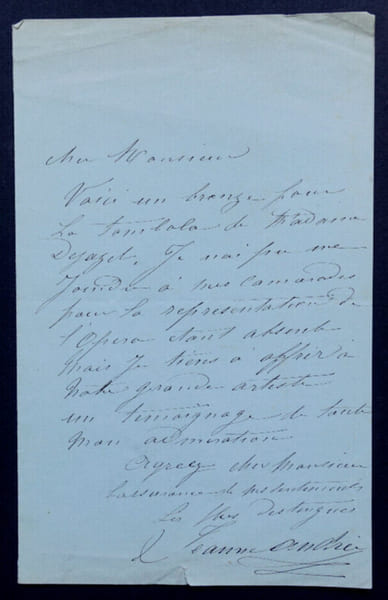 cher Monsieur
Voici un bronze pour
la tombola de Madame
Dejazet, Je n'ai pu me
Joindre à mes camarades
pour la representation de
l'Opera etant absente
mais Je tiens a offrir à
Notre grande artiste
un temoignage de toute
mon admiration
Agreez cher Monsieur
l'assurance de mes sentiments
les plus distingués
Jeanne Andrée